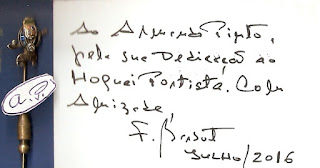 Ao Armando Pinto,
pela sua Dedicação ao
Hoquei Portista. Com
Amizade
F.
JULHO/2016
A.P.